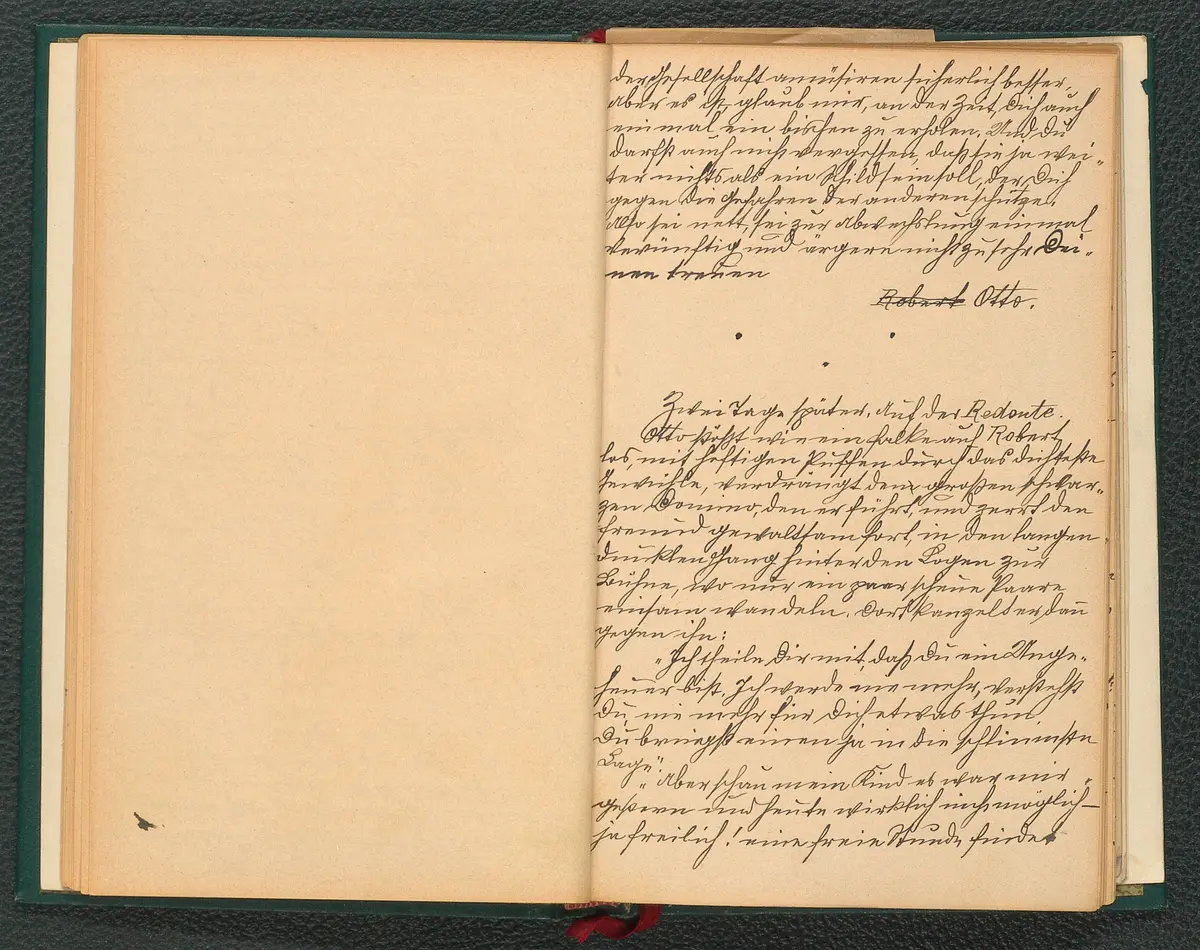 der Gesellschaft amüsiren sicherlich besser,
aber es ist, glaub mir, an der Zeit, Dich auch
einmal ein bischen zu erholen. Und Du
darfst auch nicht vergessen, daß sie ja wei-
ter nichts als ein Schild sein soll, der Dich
gegen die Gefahren der anderen schütze.
Also sei nett, sei zur Abwechslung einmal
vernünftig und ärgere nicht zu sehr Dei-
nen treuen
Robert Otto.
Zwei Tage später. Auf der Redoute.
Otto stößt wie ein Falke auf Robert
los, mit heftigen Püffen durch das dichteste
Gewühle, verdrängt den großen schwar-
zen Domino, den er führt, und zerrt den
Freund gewaltsam fort, in den langen
dunklen Gang hinter den Logen zur
Bühne, wo nur ein paar scheue Paare
einsam wandeln. Dort kanzelt er dan̄
gegen ihn:
"Ich theile Dir mit, daß Du ein Unge-
heuer bist. Ich werde nie mehr, verstehst
Du, nie mehr für Dich etwas thun.
Du bringst einen ja in die schlimmste
Lage".
"Aber schau mein Kind es war mir
gestern und heute wirklich nicht möglich –
ja freilich! eine freie Stunde findet